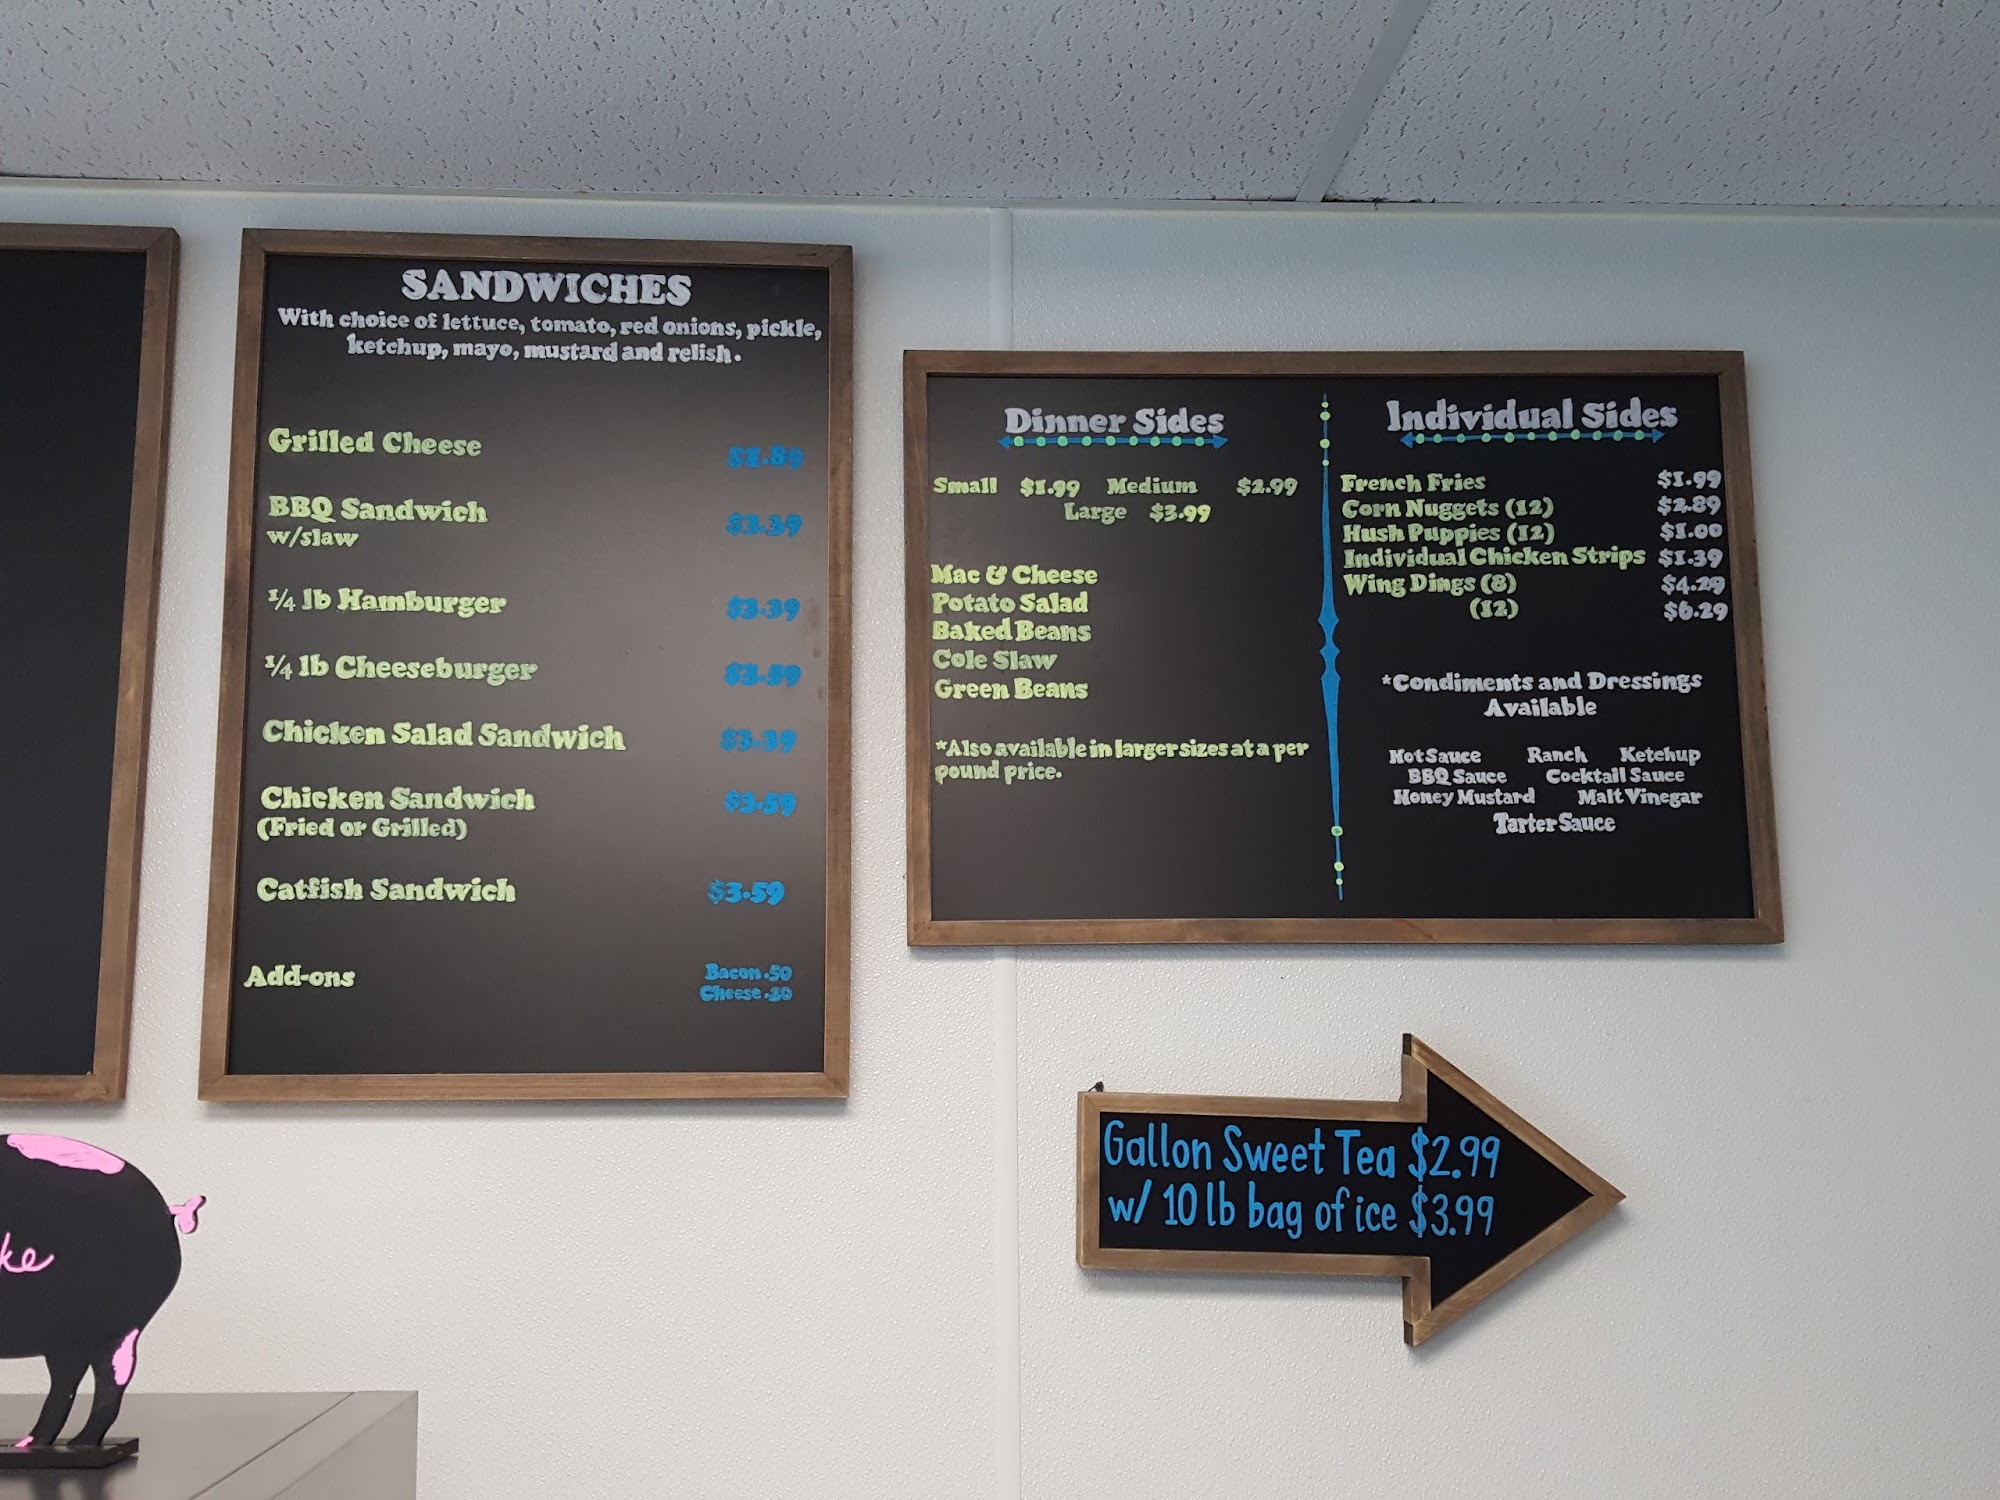 SANDWICHES
With choice of lettuce, tomato, red onions, pickle,
ketchup, mayo, mustard and relish.
Grilled Cheese $1.89
BBQ Sandwich $3.39
w/slaw
1/4 lb Hamburger $3.39
1/4 lb Cheeseburger $3.59
Chicken Salad Sandwich $3.39
Chicken Sandwich $3.59
(Fried or Grilled)
Catfish Sandwich $3.59
Add-ons Bacon .50
Cheese .20
Dinner Sides
Small $1.99 Medium $2.99
Large $3.99
Mac & Cheese
Potato Salad
Baked Beans
Cole Slaw
Green Beans
*Also available in larger sizes at a per
pound price.
Individual Sides
French Fries $1.99
Corn Nuggets (12) $2.89
Hush Puppies (12) $1.00
Individual Chicken Strips $1.39
Wing Dings (8) $4.29
(12) $6.29
*Condiments and Dressings
Available
Hot Sauce Ranch Ketchup
BBQ Sauce Cocktail Sauce
Honey Mustard Malt Vinegar
Tarter Sauce
Gallon Sweet Tea $2.99
w/ 10 lb bag of ice $3.99
ke